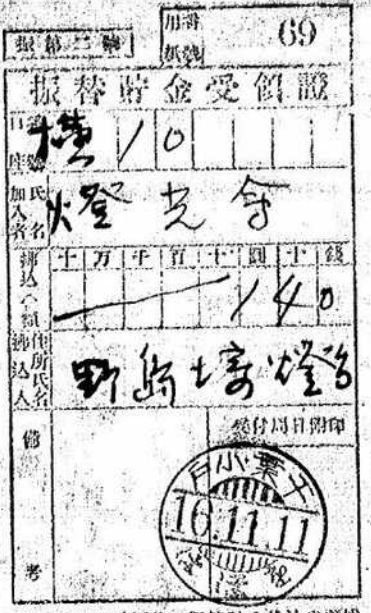 用書
紙號
69
振第二號
振替貯金受領證
口座
番號
横10
加入者
氏名
燈光會
拂込金額
十 万 千 百 十 圓 十 錢
140
拂込人
住所氏名
野島埼燈台
備考
受付局日附印
千葉・小戸
16.11.11